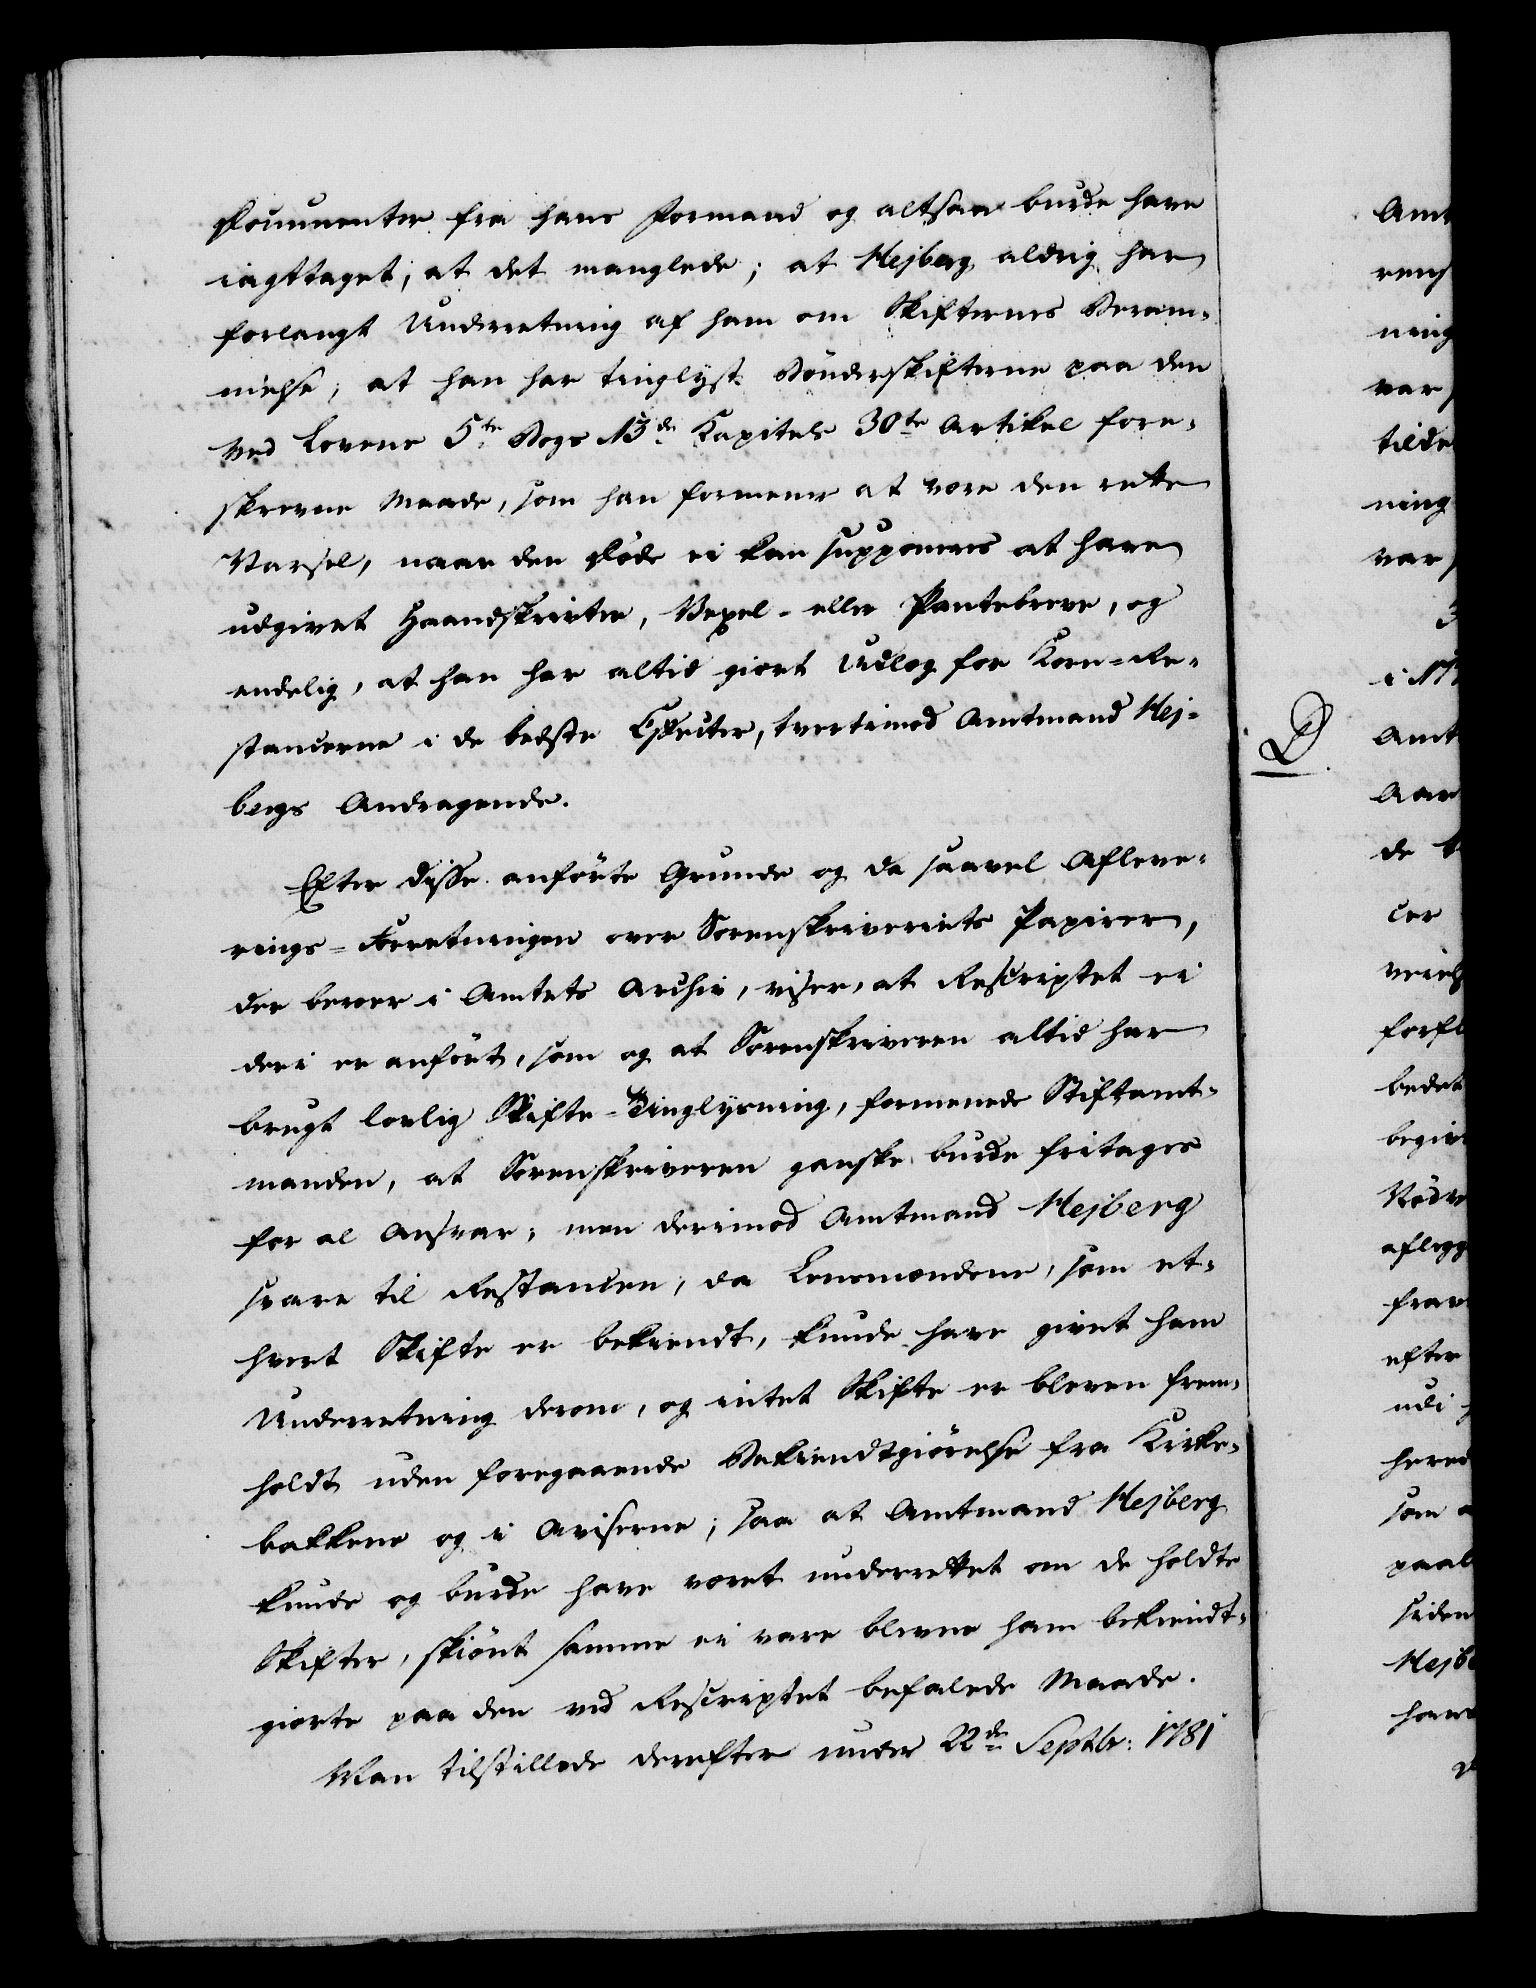 Documenter fra hans Formand og altsaa burde have
iagttaget, at det manglede; at Hejberg aldrig har
forlangt Underretning af ham om Skifternes Beram-
melse; at han har tinglyst Bönderskifterne paa den
ved Lovens 5te Bogs 13de Kapitels 30te Artikel fore-
skrevne Maade, som han formener at være den rette
Varsel, naar den Døde ei kan supponeres at have
udgivet Haandskrivter, Vexel- eller Pantebreve, og
endelig, at han har altid giort Udlæg for Korn-Re-
stancerne i de bedste Effecter, tvertimod Amtmand Hej-
bergs Andragende.
Efter disse anförte Grunde og da saavel Afleve-
rings-Forretningen over Sorenskriveriets Papirer,
der beroer i Amtets Archiv, viser, at Rescriptet ei
deri er anført, som og at Sorenskriveren altid har
brugt lovlig Skifte-Tinglysning, formenede Stiftamt-
manden, at Sorenskriveren ganske burde fritages
for al Ansvar; men derimod Amtmand Hejberg
svare til Restancen, da Lensmændene, som et-
hvert Skifte er bekiendt, kunde have givet ham
Underretning derom, og intet Skifte er bleven frem-
holdt uden foregaaende Bekiendtgiörelse fra Kirke-
bakkene og i Aviserne; saa at Amtmand Hejberg
kunde og burde have været underrettet om de holdte
Skifter, skiönt samme ei vare blevne ham bekiendt-
giorte paa den ved Rescriptet befalede Maade.
Man tilstillede derefter under 22de Septbr: 1781